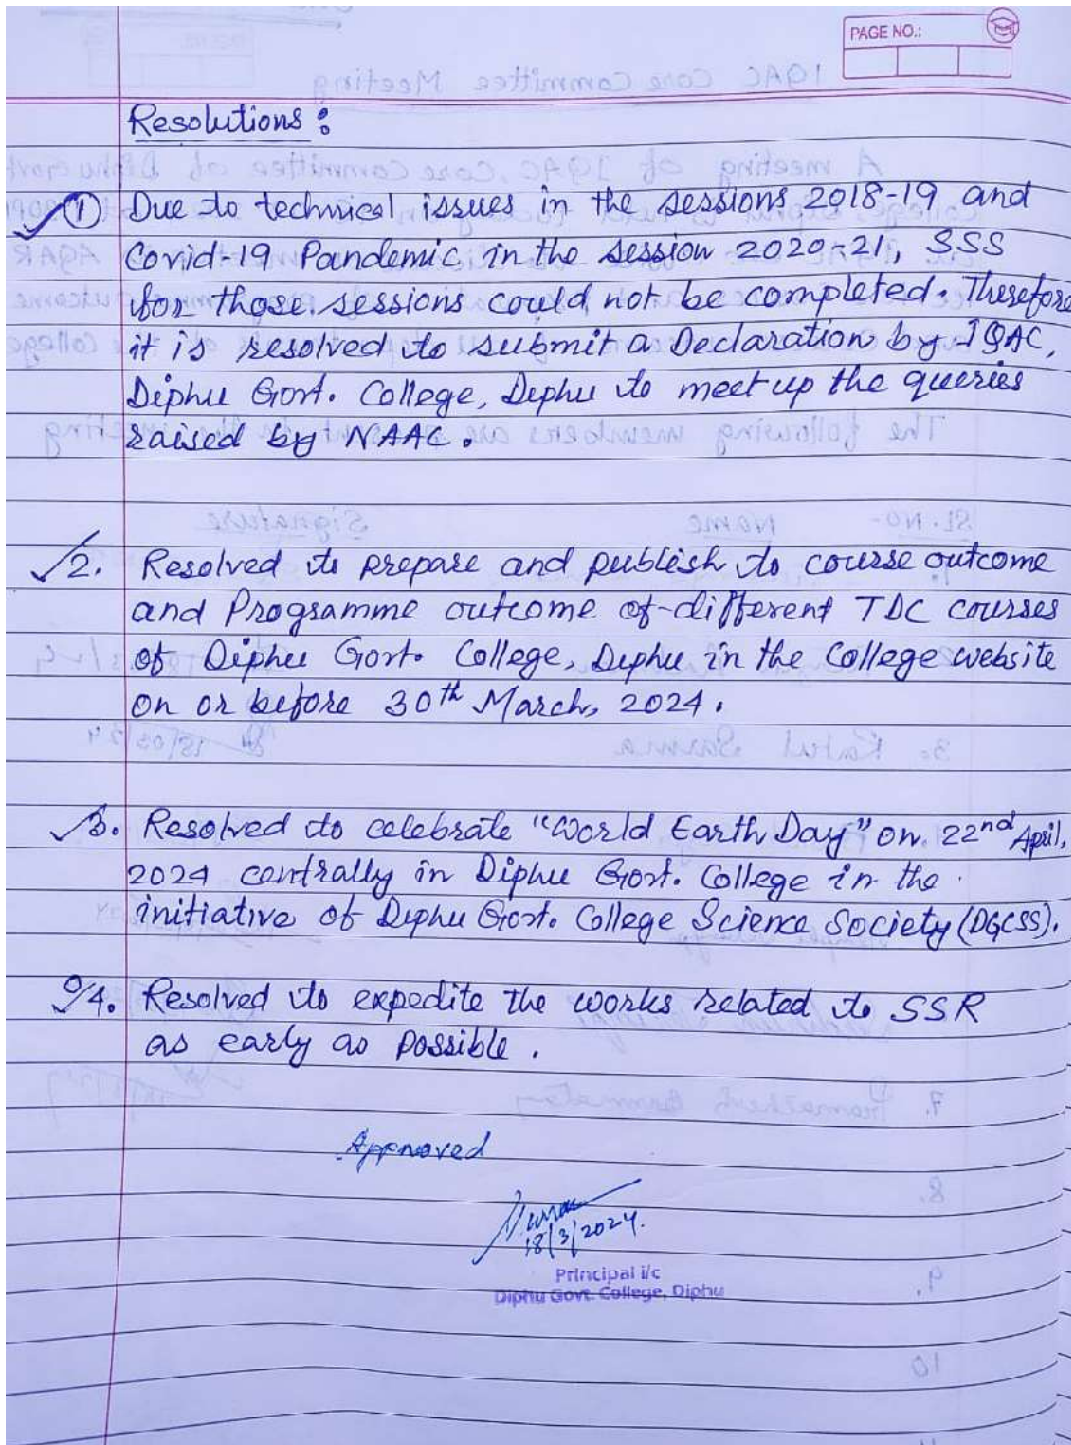 PAGE NO.:
IQAC Core Committee Meeting
Resolutions :
① Due to technical issues in the sessions 2018-19 and
Covid-19 Pandemic in the session 2020-21, SSS
for those sessions could not be completed. Therefore
it is resolved to submit a Declaration by IQAC,
Diphu Govt. College, Diphu to meet up the queries
raised by NAAC.
2. Resolved to prepare and publish to course outcome
and Programme outcome of different TDC courses
of Diphu Govt. College, Diphu in the College website
on or before 30th March, 2024.
3. Resolved to celebrate "World Earth Day" on 22nd April,
2024 centrally in Diphu Govt. College in the
initiative of Diphu Govt. College Science Society (DGCSS).
4. Resolved to expedite the works related to SSR
as early as possible.
Approved
18/3/2024.
Principal i/c
Diphu Govt. College, Diphu